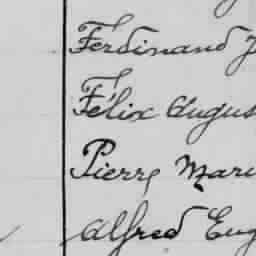 Ferdinand J
Félix Augus
Pierre Mari
Alfred Eug